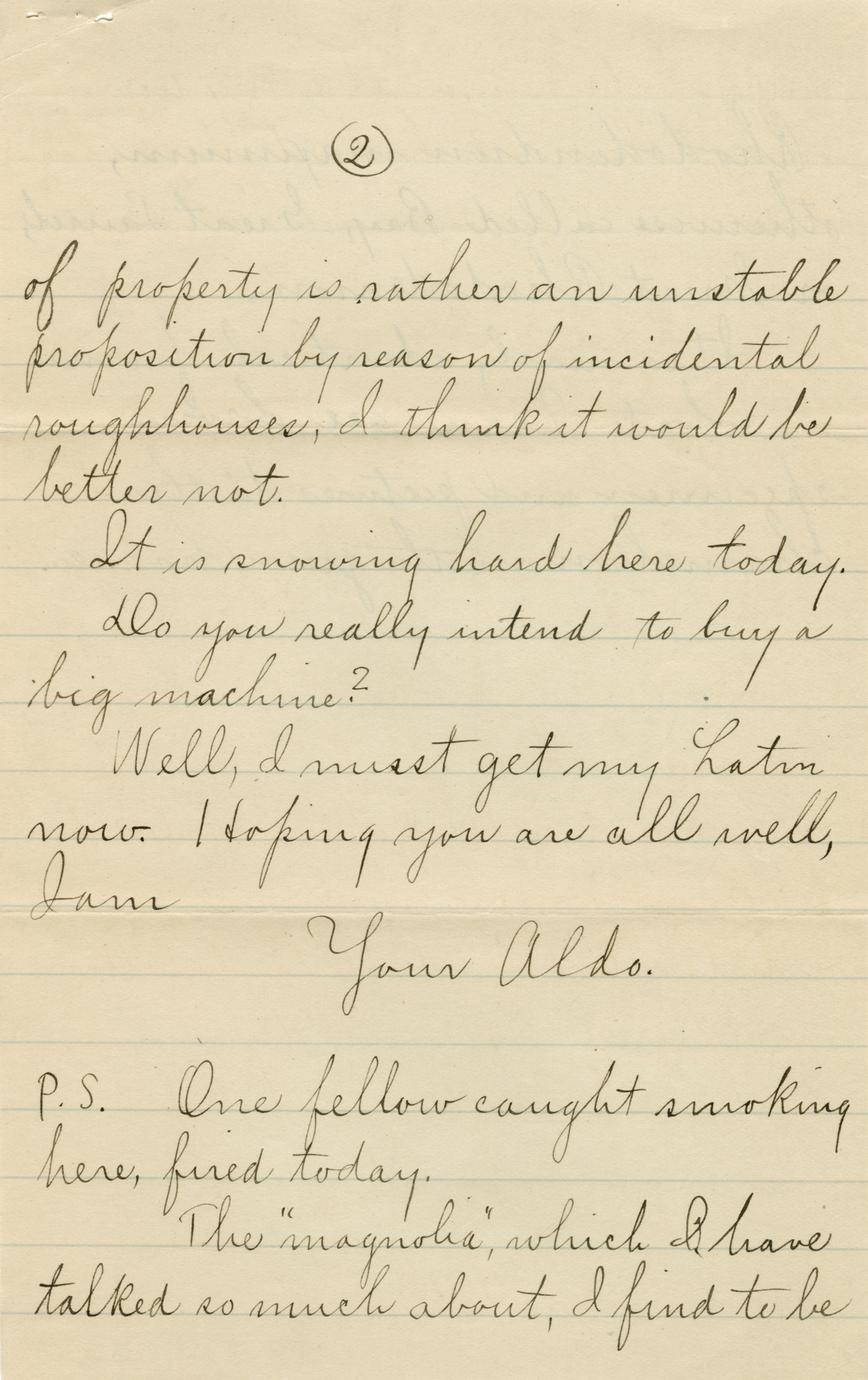 2
of property is rather an unstable
proposition by reason of incidental
roughhouses, I think it would be
better not.
It is snowing hard here today.
Do you really intend to buy a
big machine?
Well, I must get my Latin
now. Hoping you are all well,
I am
Your Aldo.
P.S. One fellow caught smoking
here, fired today.
The "magnolia", which I have
talked so much about, I find to be